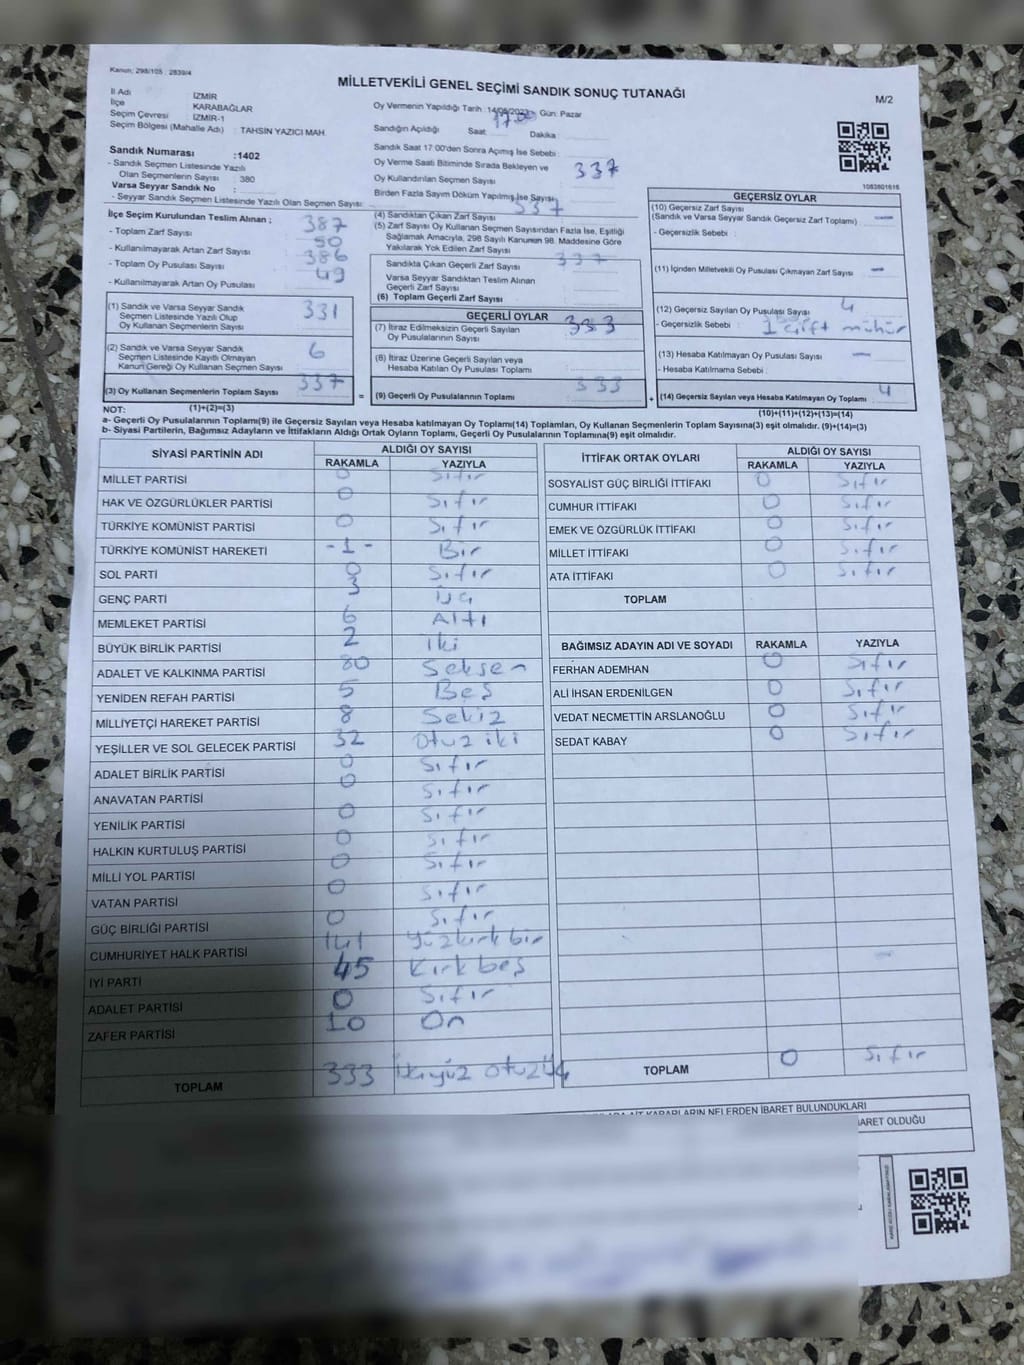 Kanun: 298/105 ; 2839/4
MİLLETVEKİLİ GENEL SEÇİMİ SANDIK SONUÇ TUTANAĞI
M/2
İl Adı : İZMİR
İlçe : KARABAĞLAR
Seçim Çevresi : İZMİR-1
Seçim Bölgesi (Mahalle Adı) : TAHSİN YAZICI MAH.
Oy Vermenin Yapıldığı Tarih : 14/05/2023 Gün: Pazar
Sandığın Açıldığı Saat: 17:00 Dakika :
Sandık Saat 17:00'den Sonra Açılmış İse Sebebi :
Oy Verme Saati Bitiminde Sırada Bekleyen ve
Oy Kullandırılan Seçmen Sayısı : 337
Birden Fazla Sayım Döküm Yapılmış İse Sayısı :
337
Sandık Numarası :1402
- Sandık Seçmen Listesinde Yazılı
Olan Seçmenlerin Sayısı : 380
Varsa Seyyar Sandık No :
- Seyyar Sandık Seçmen Listesinde Yazılı Olan Seçmen Sayısı:
1083801616
İlçe Seçim Kurulundan Teslim Alınan ;
- Toplam Zarf Sayısı : 387
- Kullanılmayarak Artan Zarf Sayısı : 50
- Toplam Oy Pusulası Sayısı : 386
- Kullanılmayarak Artan Oy Pusulası : 49
(1) Sandık ve Varsa Seyyar Sandık
Seçmen Listesinde Yazılı Olup
Oy Kullanan Seçmenlerin Sayısı : 331
(2) Sandık ve Varsa Seyyar Sandık
Seçmen Listesinde Kayıtlı Olmayan
Kanun Gereği Oy Kullanan Seçmen Sayısı : 6
(3) Oy Kullanan Seçmenlerin Toplam Sayısı : 337
(1)+(2)=(3)
(4) Sandıktan Çıkan Zarf Sayısı :
(5) Zarf Sayısı Oy Kullanan Seçmen Sayısından Fazla İse, Eşitliği
Sağlamak Amacıyla, 298 Sayılı Kanunun 98. Maddesine Göre
Yakılarak Yok Edilen Zarf Sayısı :
Sandıkta Çıkan Geçerli Zarf Sayısı : 337
Varsa Seyyar Sandıktan Teslim Alınan
Geçerli Zarf Sayısı :
(6) Toplam Geçerli Zarf Sayısı :
GEÇERLİ OYLAR
(7) İtiraz Edilmeksizin Geçerli Sayılan
Oy Pusulalarının Sayısı : 333
(8) İtiraz Üzerine Geçerli Sayılan veya
Hesaba Katılan Oy Pusulası Toplamı :
(9) Geçerli Oy Pusulalarının Toplamı : 333
GEÇERSİZ OYLAR
(10) Geçersiz Zarf Sayısı
(Sandık ve Varsa Seyyar Sandık Geçersiz Zarf Toplamı) : —
- Geçersizlik Sebebi :
(11) İçinden Milletvekili Oy Pusulası Çıkmayan Zarf Sayısı : —
(12) Geçersiz Sayılan Oy Pusulası Sayısı : 4
- Geçersizlik Sebebi : 1 çift mühür
(13) Hesaba Katılmayan Oy Pusulası Sayısı : —
- Hesaba Katılmama Sebebi :
(14) Geçersiz Sayılan veya Hesaba Katılmayan Oy Toplamı : 4
(10)+(11)+(12)+(13)=(14)
NOT:
a- Geçerli Oy Pusulalarının Toplamı(9) ile Geçersiz Sayılan veya Hesaba katılmayan Oy Toplamı(14) Toplamları, Oy Kullanan Seçmenlerin Toplam Sayısına(3) eşit olmalıdır. (9)+(14)=(3)
b- Siyasi Partilerin, Bağımsız Adayların ve İttifakların Aldığı Ortak Oyların Toplamı, Geçerli Oy Pusulalarının Toplamına(9) eşit olmalıdır.
SİYASİ PARTİNİN ADI ALDIĞI OY SAYISI
RAKAMLA YAZIYLA
MİLLET PARTİSİ 0 Sıfır
HAK VE ÖZGÜRLÜKLER PARTİSİ 0 Sıfır
TÜRKİYE KOMÜNİST PARTİSİ 0 Sıfır
TÜRKİYE KOMÜNİST HAREKETİ -1- Bir
SOL PARTİ 0 Sıfır
GENÇ PARTİ 3 Üç
MEMLEKET PARTİSİ 6 Altı
BÜYÜK BİRLİK PARTİSİ 2 İki
ADALET VE KALKINMA PARTİSİ 80 Seksen
YENİDEN REFAH PARTİSİ 5 Beş
MİLLİYETÇİ HAREKET PARTİSİ 8 Sekiz
YEŞİLLER VE SOL GELECEK PARTİSİ 32 Otuz iki
ADALET BİRLİK PARTİSİ 0 Sıfır
ANAVATAN PARTİSİ 0 Sıfır
YENİLİK PARTİSİ 0 Sıfır
HALKIN KURTULUŞ PARTİSİ 0 Sıfır
MİLLİ YOL PARTİSİ 0 Sıfır
VATAN PARTİSİ 0 Sıfır
GÜÇ BİRLİĞİ PARTİSİ 0 Sıfır
CUMHURİYET HALK PARTİSİ 141 Yüzkırk bir
İYİ PARTİ 45 Kırk beş
ADALET PARTİSİ 0 Sıfır
ZAFER PARTİSİ 10 On
TOPLAM 333
İTTİFAK ORTAK OYLARI ALDIĞI OY SAYISI
RAKAMLA YAZIYLA
SOSYALİST GÜÇ BİRLİĞİ İTTİFAKI 0 Sıfır
CUMHUR İTTİFAKI 0 Sıfır
EMEK VE ÖZGÜRLÜK İTTİFAKI 0 Sıfır
MİLLET İTTİFAKI 0 Sıfır
ATA İTTİFAKI 0 Sıfır
TOPLAM
BAĞIMSIZ ADAYIN ADI VE SOYADI RAKAMLA YAZIYLA
FERHAN ADEMHAN 0 Sıfır
ALİ İHSAN ERDENİLGEN 0 Sıfır
VEDAT NECMETTİN ARSLANOĞLU 0 Sıfır
SEDAT KABAY 0 Sıfır
TOPLAM 0 Sıfır
KARARLARIN NELERDEN İBARET BULUNDUKLARI
İBARET OLDUĞU